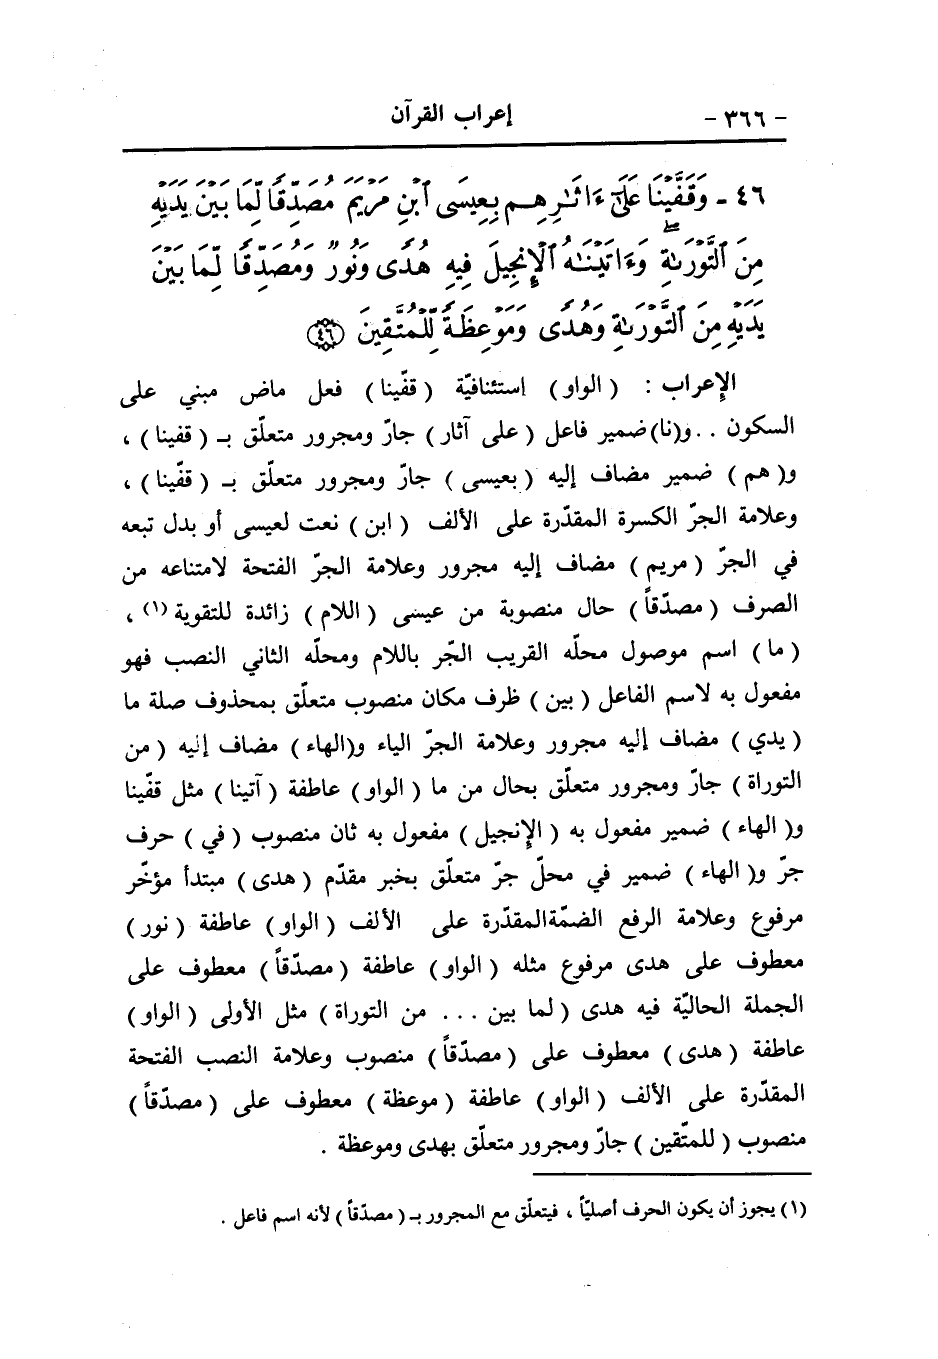 - ٣٦٦ - إعراب القرآن
٤٦ - وَقَفَّيْنَا عَلَىٰٓ ءَاثَٰرِهِم بِعِيسَى ٱبْنِ مَرْيَمَ مُصَدِّقًا لِّمَا بَيْنَ يَدَيْهِ
مِنَ ٱلتَّوْرَىٰةِ ۖ وَءَاتَيْنَٰهُ ٱلْإِنجِيلَ فِيهِ هُدًى وَنُورٌ وَمُصَدِّقًا لِّمَا بَيْنَ
يَدَيْهِ مِنَ ٱلتَّوْرَىٰةِ وَهُدًى وَمَوْعِظَةً لِّلْمُتَّقِينَ ﴿٤٦﴾
الإعراب : ( الواو) استئنافيّة ( قفّينا) فعل ماض مبني على
السكون . . و(نا)ضمير فاعل ( على آثار) جارّ ومجرور متعلّق بـ ( قفينا) ،
و( هم ) ضمير مضاف إليه ( بعيسى ) جارّ ومجرور متعلّق بـ ( قفّينا) ،
وعلامة الجرّ الكسرة المقدّرة على الألف ( ابن ) نعت لعيسى أو بدل تبعه
في الجرّ ( مريم ) مضاف إليه مجرور وعلامة الجرّ الفتحة لامتناعه من
الصرف ( مصدّقاً) حال منصوبة من عيسى ( اللام ) زائدة للتقوية (١) ،
( ما ) اسم موصول محلّه القريب الجّر باللام ومحلّه الثاني النصب فهو
مفعول به لاسم الفاعل ( بين ) ظرف مكان منصوب متعلّق بمحذوف صلة ما
( يدي ) مضاف إليه مجرور وعلامة الجرّ الياء و(الهاء ) مضاف إليه ( من
التوراة ) جارّ ومجرور متعلّق بحال من ما ( الواو) عاطفة ( آتينا ) مثل قفّينا
و( الهاء ) ضمير مفعول به ( الإنجيل ) مفعول به ثان منصوب ( في ) حرف
جرّ و( الهاء ) ضمير في محلّ جرّ متعلّق بخبر مقدّم ( هدى ) مبتدأ مؤخّر
مرفوع وعلامة الرفع الضمّةالمقدّرة على الألف ( الواو) عاطفة ( نور)
معطوف على هدى مرفوع مثله ( الواو) عاطفة ( مصدّقاً ) معطوف على
الجملة الحاليّة فيه هدى ( لما بين . . . من التوراة ) مثل الأولى ( الواو)
عاطفة ( هدى ) معطوف على ( مصدّقاً ) منصوب وعلامة النصب الفتحة
المقدّرة على الألف ( الواو) عاطفة ( موعظة ) معطوف على ( مصدّقاً )
منصوب ( للمتّقين ) جارّ ومجرور متعلّق بهدى وموعظة .
(١) يجوز أن يكون الحرف أصليّاً ، فيتعلّق مع المجرور بـ ( مصدّقاً ) لأنه اسم فاعل .